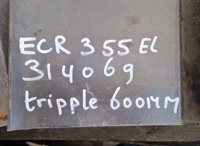 ECR 355 EL
314069
tripple 600MM